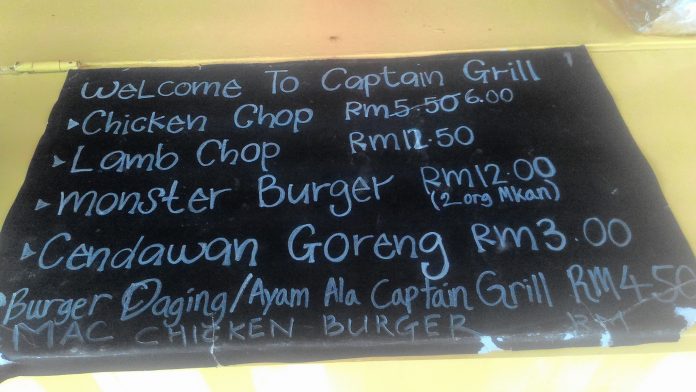 Welcome To Captain Grill
Chicken Chop RM5.50 6.00
Lamb Chop RM12.50
monster Burger RM12.00
(2 org Mkan)
Cendawan Goreng RM3.00
Burger Daging/Ayam Ala Captain Grill RM4.50
MAC CHICKEN BURGER RM